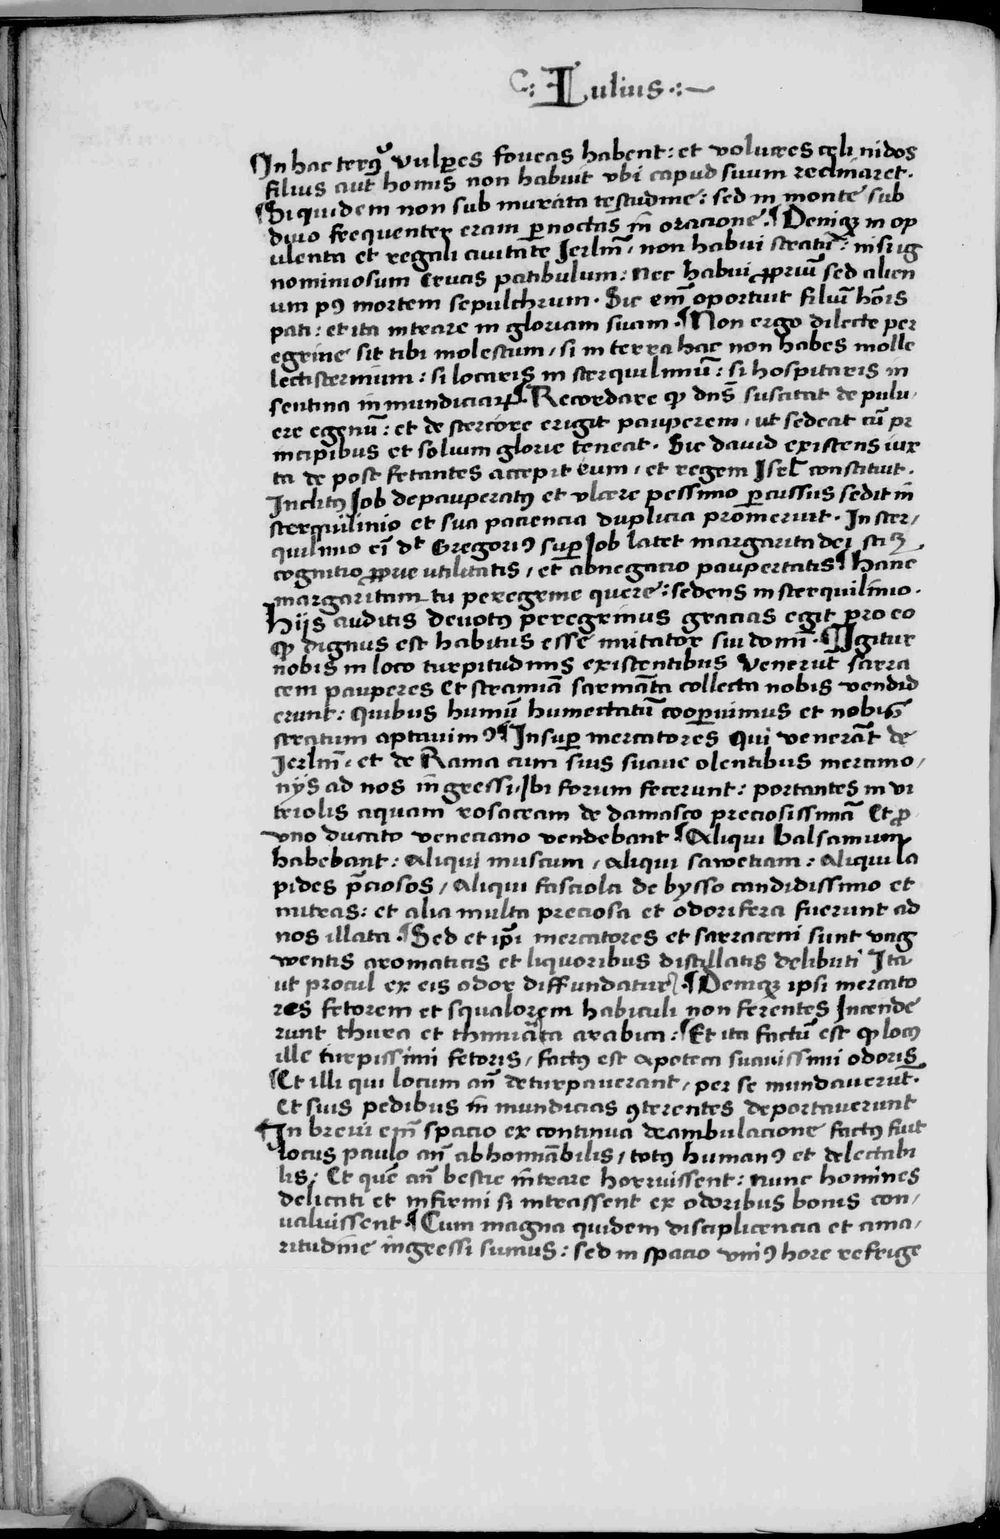 C: Iulius :~
In hac terꝰ vulpes foueas habent: et volucres celi nidos
filius aut̄ homīs non habuit vbi capud suum reclinaret.
¶Siquidem non sub murata testudine: sed in monte sub
diuo frequenter eram ꝑnoctās in oracione. ¶Deniqꝫ in op
ulenta et regali ciuitate Jerlm̄, non habui stratū: nisi ig
nominiosum Crucis patibulum: Nec habui ꝓpriū sed alien
um pꝰ mortem sepulchrum. Sic em̄ oportuit filiū hoīs
pati: et ita intrare in gloriam suam. ¶Non ergo dilecte per
egrine sit tibi molestum, si in terra hac non habes molle
lectisternium: si locaris in sterquiliniū: si hospitaris in
sentina inmundiciaꝝ. Recordare ꝙ dn̄s suscitat de pulu,
ere egenū: et de stercore erigit pauperem, ut sedeat cū pr
incipibus et solium glorie teneat. Sic dauid existens iux
ta de post fetantes accepit eum, et regem Isrl̄ constituit.
Inclitꝰ Job depauperatꝰ et vlcere pessimo ꝑcussus sedit in
sterquilinio et sua paciencia duplicia promeruit. In ster,
quilinio ei̅ dt̄ Gregoriꝰ suꝑ Job latet margarita dei sciꝫ
cognitio ꝓprie utilitatis, et abnegacio paupertatis. ¶Hanc
margaritam tu peregrine quere: sedens in sterquilinio.
Hijs auditis deuotꝰ peregrinus gracias egit pro eo
ꝙ dignus est habitus esse imitator sui domī. ¶Igitur
nobis in loco turpitudinis existentibus Venerūt sarra
ceni pauperes Et stramiā sarmāta collecta nobis vendid
erunt: Quibus humū humectatū cooꝑuimus et nobis
stratum aptauimꝰ ¶Insuꝑ mercatores Qui venerāt de
Jerlm̄, et de Rama cum suis suaue olentibus mercimo,
nijs ad nos ingressi, Ibi forum fecerunt: portantes in vi
triolis aquam rosaceam de damasco preciosissimā Et ꝓ
vno ducato veneciano vendebant ¶Aliqui balsamum
habebant: Aliqui muscum, Aliqui sawetiam: Aliqui la
pides p̄ciosos, Aliqui fasciola de bysso candidissimo et
mitras: et alia multa preciosa et odorifera fuerunt ad
nos illata. ¶Sed et ip̄i mercatores et sarraceni sunt vng
wentis aromaticis et liquoribus distillatis delibuti Ita
ut procul ex eis odor diffundatur. ¶Deniqꝫ ipsi mercato
res fetorem et squalorem habiculi non ferentes Incende
runt thura et thimiāta arabica: ¶Et ita factū est ꝙ locꝰ
ille turpissimi fetoris, factꝰ est Apoteca suauissimi odoris
¶Et illi qui locum an̄ deturpauerant, per se mundauerūt.
Et suis pedibus in mundicias ꝯterentes deportauerunt
¶In breui em̄ spacio ex continua deambulacione factꝰ fuit
locus paulo an̄ abhominābilis, totꝰ humanꝰ et delectabi
lis: Et quē an̄ bestie intrare horruissent: nunc homines
delicati et infirmi si intrassent ex odoribus bonis con,
ualuissent. ¶Cum magna quidem displicencia et ama,
ritudine ingressi sumus: sed in spacio vniꝰ hore refrige